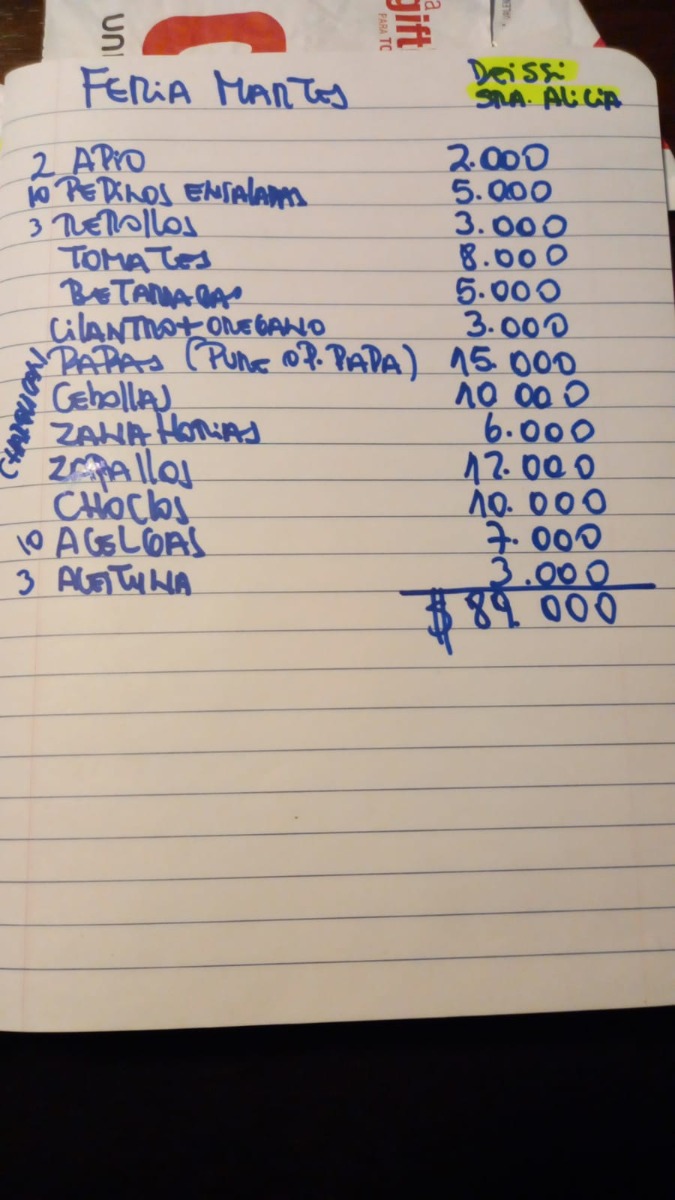 gift
PARA TO
UNI
FERIA MARTES
DEISSI
SRA. ALICIA
2 APIO 2.000
10 PEPINOS ENSALADAS 5.000
3 REPOLLOS 3.000
TOMATES 8.000
BETARRAGAS 5.000
CILANTRO + OREGANO 3.000
PAPAS (PURE OP. PAPA) 15.000
CEBOLLAS 10 000
ZANAHORIAS 6.000
ZAPALLOS 12.000
CHOCLOS 10.000
10 ACELGAS 7.000
3 ACEITUNA 3.000
$ 89.000